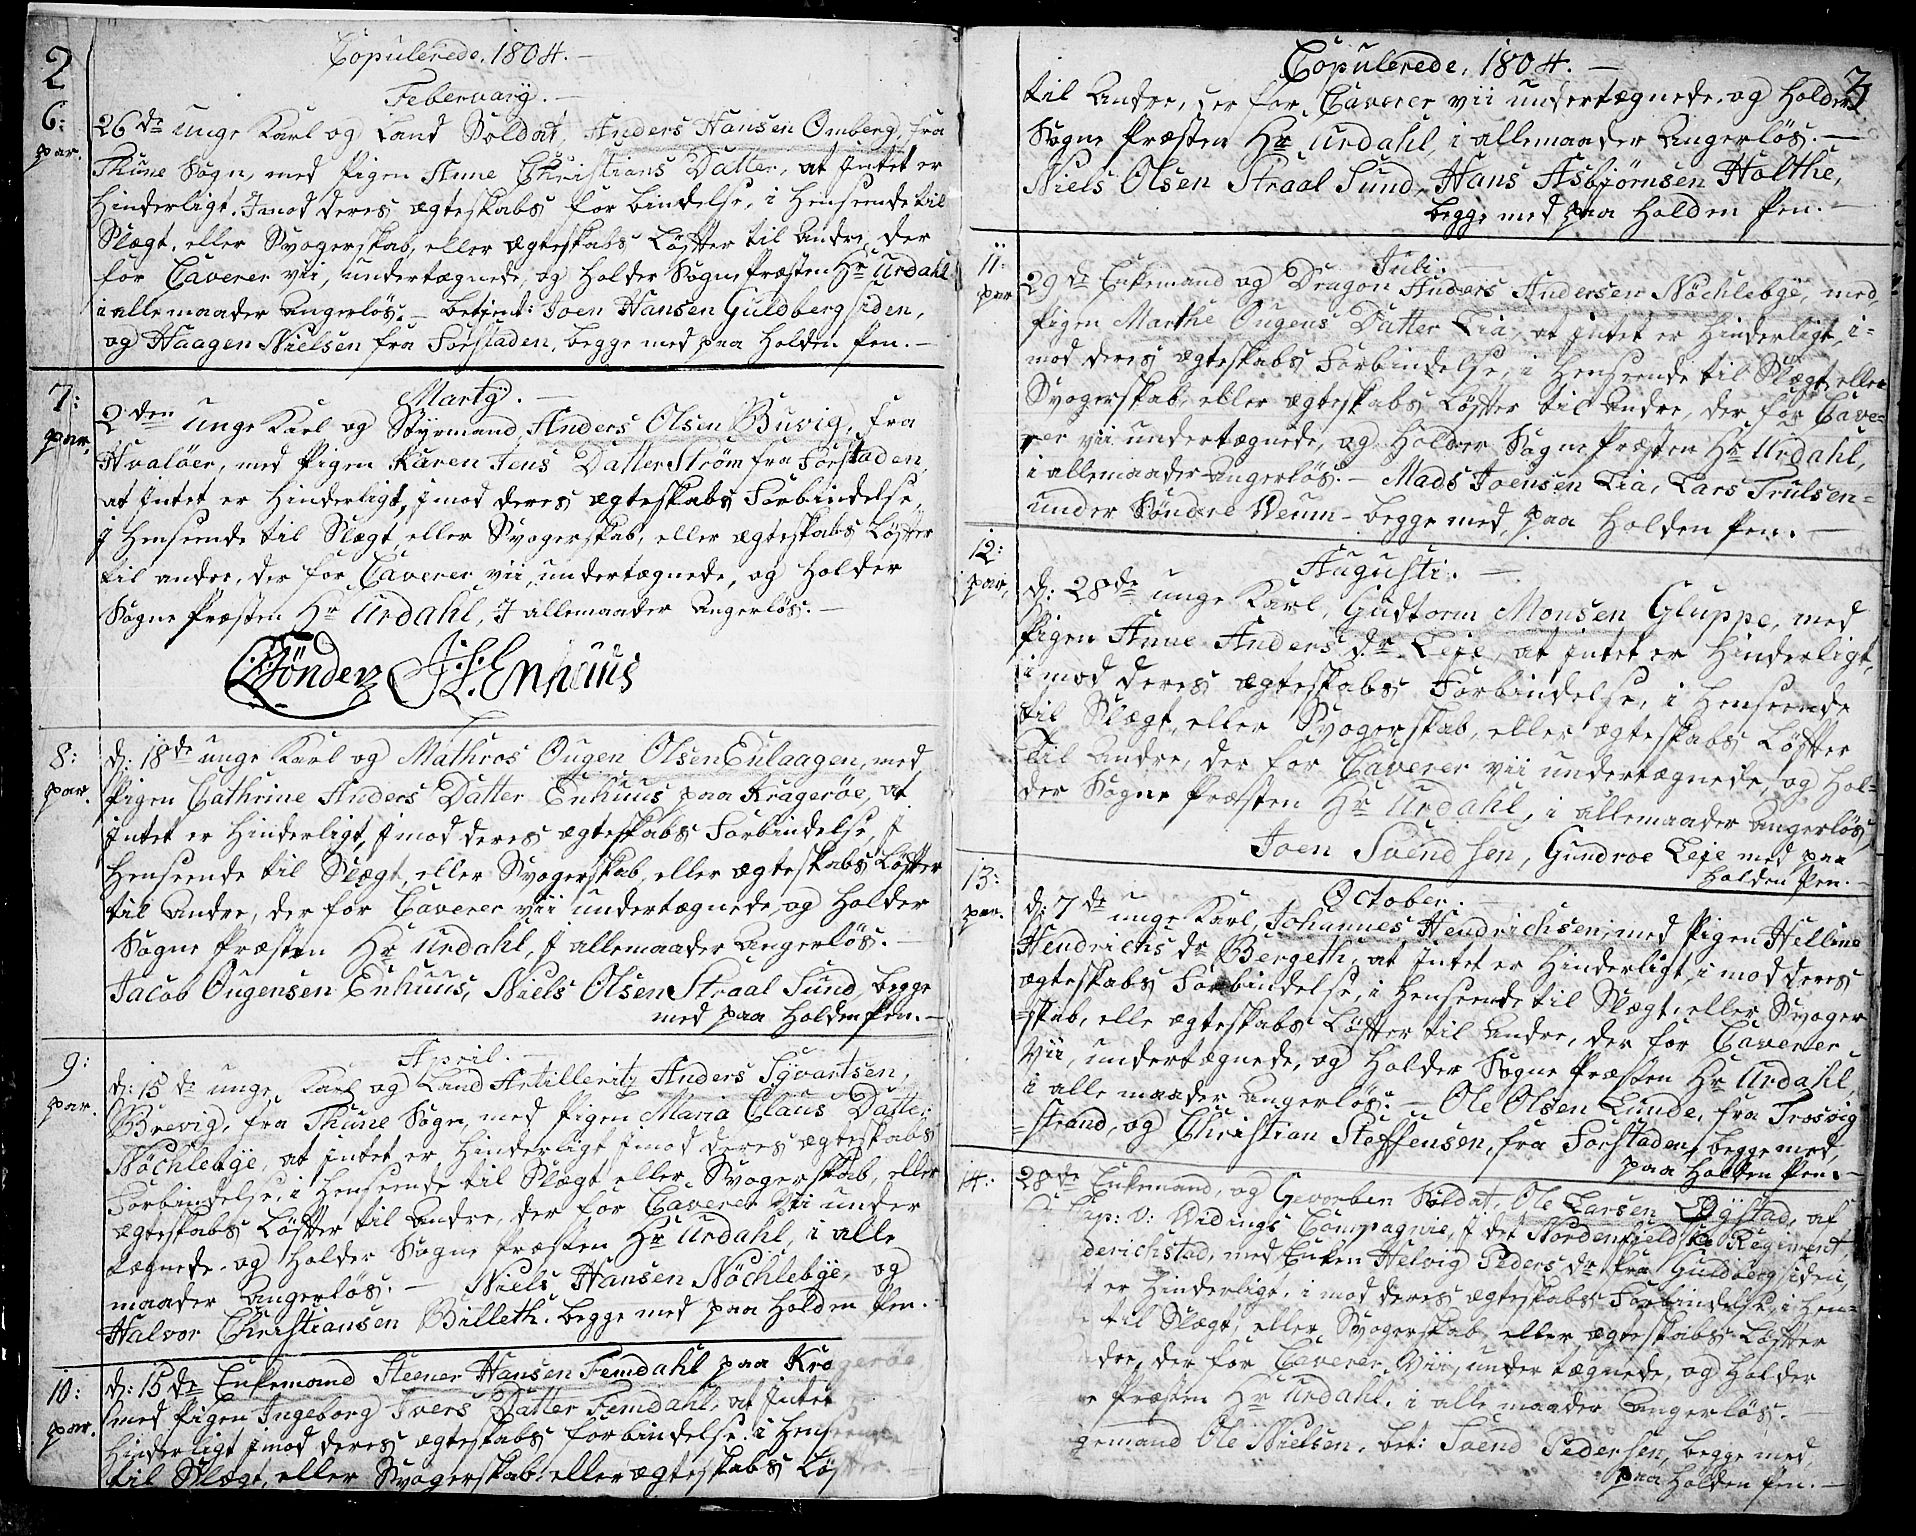 2
Copulerede. 1804. —
Feberuarÿ. —
6:
par.
26de unge Karl og Land Soldat, Anders Hansen Omberg, fra
Thune Sogn, med Pigen Anne Christians Datter, at Intet er
Hinderligt. Imod deres ægteskabs for bindelse, i Henseende til
Slægt, eller Svogerskab, eller ægteskabs Løfter til Andre, der
for Caverer vii, undertægnede, og Holder Sogne Præsten Hr Urdahl
i allemaader Angerløs. — betient: Joen Hansen Guldberg siden,
og Haagen Nielsen fra Forstaden, begge med paa Holden Pen. —
Martÿ. —
7:
par.
2den unge Karl og Styrmand, Anders Olsen Buvig, fra
Hvaløer, med Pigen Karen Jens Datter Strøm fra Forstaden,
at Intet er Hinderligt, Imod deres ægteskabs Forbindelse,
I Henseende til Slægt, eller Svogerskab, eller ægteskabs Løfter
til andre, der for Caverer vii, undertægnede, og Holder
Sogne Præsten Hr Urdahl, I allemaader Angerløs. —
Tønder Enhuus
8:
par.
d: 18de unge Karl og Mathros Ougen Olsen Eulaagen, med
Pigen Cathrine Anders Datter Enhuus paa Kragerøe, at
Intet er Hinderligt, Imod deres ægteskabs Forbindelse, I
Henseende til Slægt, eller Svogerskab, eller ægteskabs Løfter
til Andre, der for Caverer vii undertægnede, og Holder
Sogne Præsten Hr Urdahl, I allemaader Angerløs. —
Jacob Ougensen Enhuus, Niels Olsen Straal Sund, begge
med paa Holden Pen. —
April. —
9:
par.
d: 15de unge Karl og Land Artilleritz Anders Syvartsen,
Brevig, fra Thune Sogn, med Pigen Maria Claus Datter
Nøchlebÿe, at Intet er Hinderligt Imod deres ægteskabs
Forbindelse, i Henseende til Slægt eller Svogerskab, eller
ægteskabs Løfter til Andre, der for Caverer vii under
tægnede og Holder Sogne Præsten Hr Urdahl, i alle
maader Angerløs. — Niels Hansen Nøchlebÿe, og
Halvor Christiansen Billeth. begge med paa Holden Pen.
10:
par.
d: 15de Enkemand Steener Hansen Femdahl paa Kragerøe,
med Pigen Ingeborg Ivers Datter Femdahl, at Intet
Hinderligt Imod deres ægteskabs forbindelse i Henseende
til Slægt, eller Svogerskab, eller ægteskabs Løfter
Copulerede. 1804. —
3
til Andre, der for Caverer vii undertægnede, og Holder
Sogne Præsten Hr Urdahl, i allemaader Angerløs. —
Niels Olsen Straal Sund, Hans Asbjørnsen Holthe,
begge med paa Holden Pen. —
Juli.
11:
par
29de Enkemand og Dragon Anders Andersen Nøchlebÿe, med,
Pigen Marthe Ougens Datter Lia, at Intet er Hinderligt, i=
mod deres ægteskabs Forbindelse, i Henseende til Slægt, eller
Svogerskab, eller ægteskabs Løfter til Andre, der for Cave=
rer vii undertægnede, og Holder Sogne Præsten Hr Urdahl,
i allemaader Angerløs. — Mads Joensen Lia, Lars Trulsen=
under Søndre Veum — begge med, paa Holden Pen. —
Augusti. —
12:
par,
d: 28de unge Karl, Gudtorm Monsen Gluppe, med
Pigen Anne Anders dr. Leje, at Intet er Hinderligt,
imod deres ægteskabs Forbindelse, i Henseende
til Slægt, eller Svogerskab, eller ægteskabs Løfter
Til Andre, der for Caverer vii undertægnede, og Hol=
der Sogne Præsten Hr Urdahl, i allemaader Angerløs,
Joen Svendsen, Gundroe Leje med paa
Holden Pen. —
October. —
13:
par.
d: 7de unge Karl, Johannes Hendrichsen, med Pigen Helline
Hendrichs dr Bergeth, at Intet er Hinderligt, i mod deres
ægteskabs Forbindelse, i Henseende til Slægt, eller Svoger
=skab, elle ægteskabs Løfter til Andre, der for Caverer
vii, undertægnede, og Holder Sogne Præsten Hr Urdahl,
i alle maader Angerløs. — Ole Olsen Lunde, fra Trosvig
=strand, og Christian Steffensen, fra Forstaden, begge med,
paa Holden Pen. —
14:
28de Enkemand, og Gevorben Soldat, Ole Larsen Bÿstad, af
Cap: v: Widings Compagnie, I det Nordenfieldske Regiment
derichstad, med Enken Helvig Peders dr fra Guldberg siden,
t er Hinderligt, i mod deres ægteskabs Forbindelse, i Hen=
til Slægt, eller Svogerskab, eller ægteskabs Løfter
ndre, der for Caverer vii, under tægnede, og Holder
e Præsten Hr Urdahl, i alle maader Angerløs. —
gemand Ole Nielsen, bet: Svend Pedersen, begge med,
paa Holden Pen. —